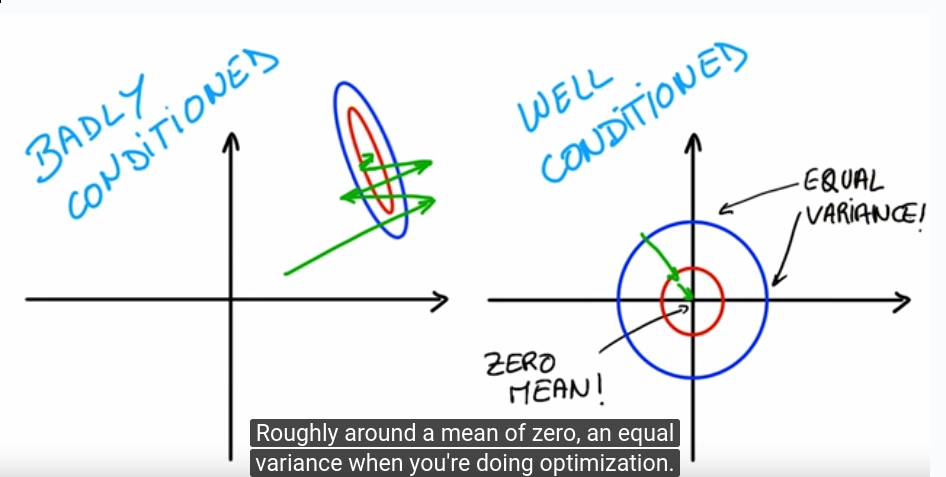 BADLY
CONDITIONED
WELL
CONDITIONED
EQUAL
VARIANCE!
ZERO
MEAN!
Roughly around a mean of zero, an equal
variance when you're doing optimization.